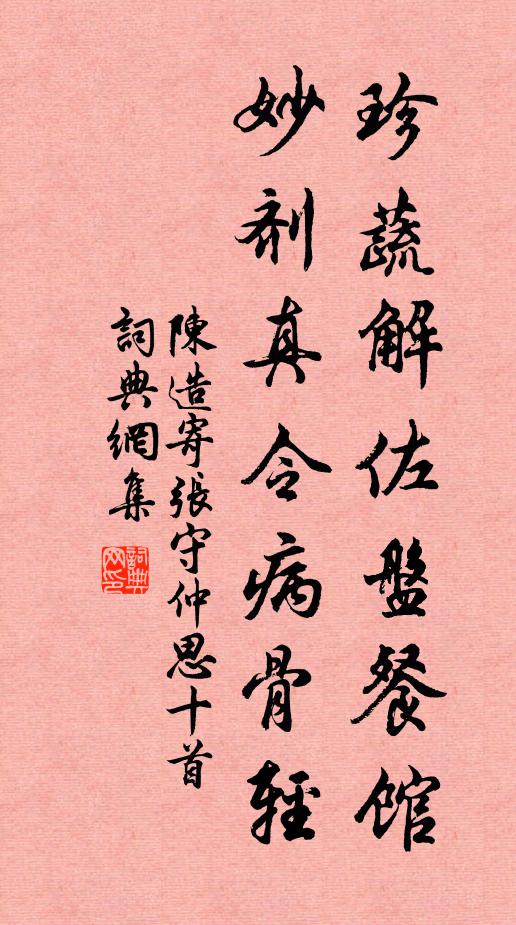 珍蔬解佐盤餐馆
妙剂真令病骨輕
陳造寄張守仲思十首
詞典網集
詞典網印